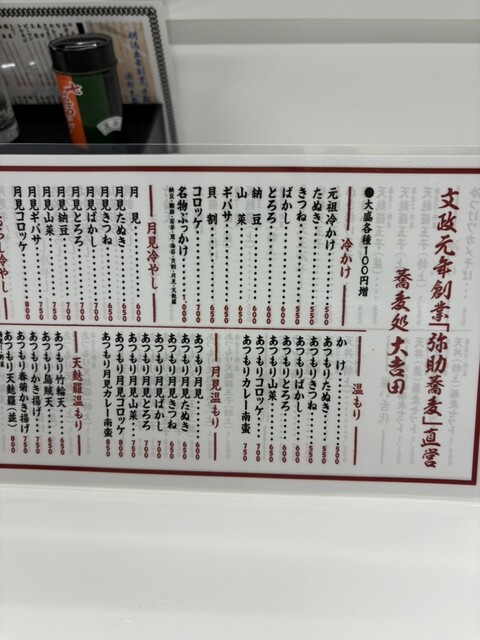 文政元年創業「弥助蕎麦」直営
蕎麦処 大吉田
●大盛各種100円増
冷かけ
元祖冷かけ……500
たぬき……550
きつね……550
ばかし……600
とろろ……600
納豆……600
山菜……650
ギバサ……650
貝割……600
コロッケ……700
名物ぶっかけ……1,000
月見冷やし
月見……600
月見たぬき……650
月見きつね……650
月見ばかし……700
月見とろろ……700
月見納豆……700
月見山菜……750
月見ギバサ……750
月見コロッケ……800
温もり
かけ……500
あつもりたぬき……550
あつもりきつね……550
あつもりばかし……600
あつもりとろろ……600
あつもり山菜……650
あつもりコロッケ……700
あつもりカレー南蛮 750
月見温もり
あつもり月見……600
あつもり月見たぬき 650
あつもり月見きつね 650
あつもり月見ばかし 700
あつもり月見とろろ 700
あつもり月見山菜……750
あつもり月見コロッケ 800
あつもり月見カレー南蛮 850
天麩羅温もり
あつもり竹輪天……650
あつもり烏賊天……650
あつもりかき揚げ……750
あつもり春菊かき揚げ 750
あつもり天麩羅（並） 850